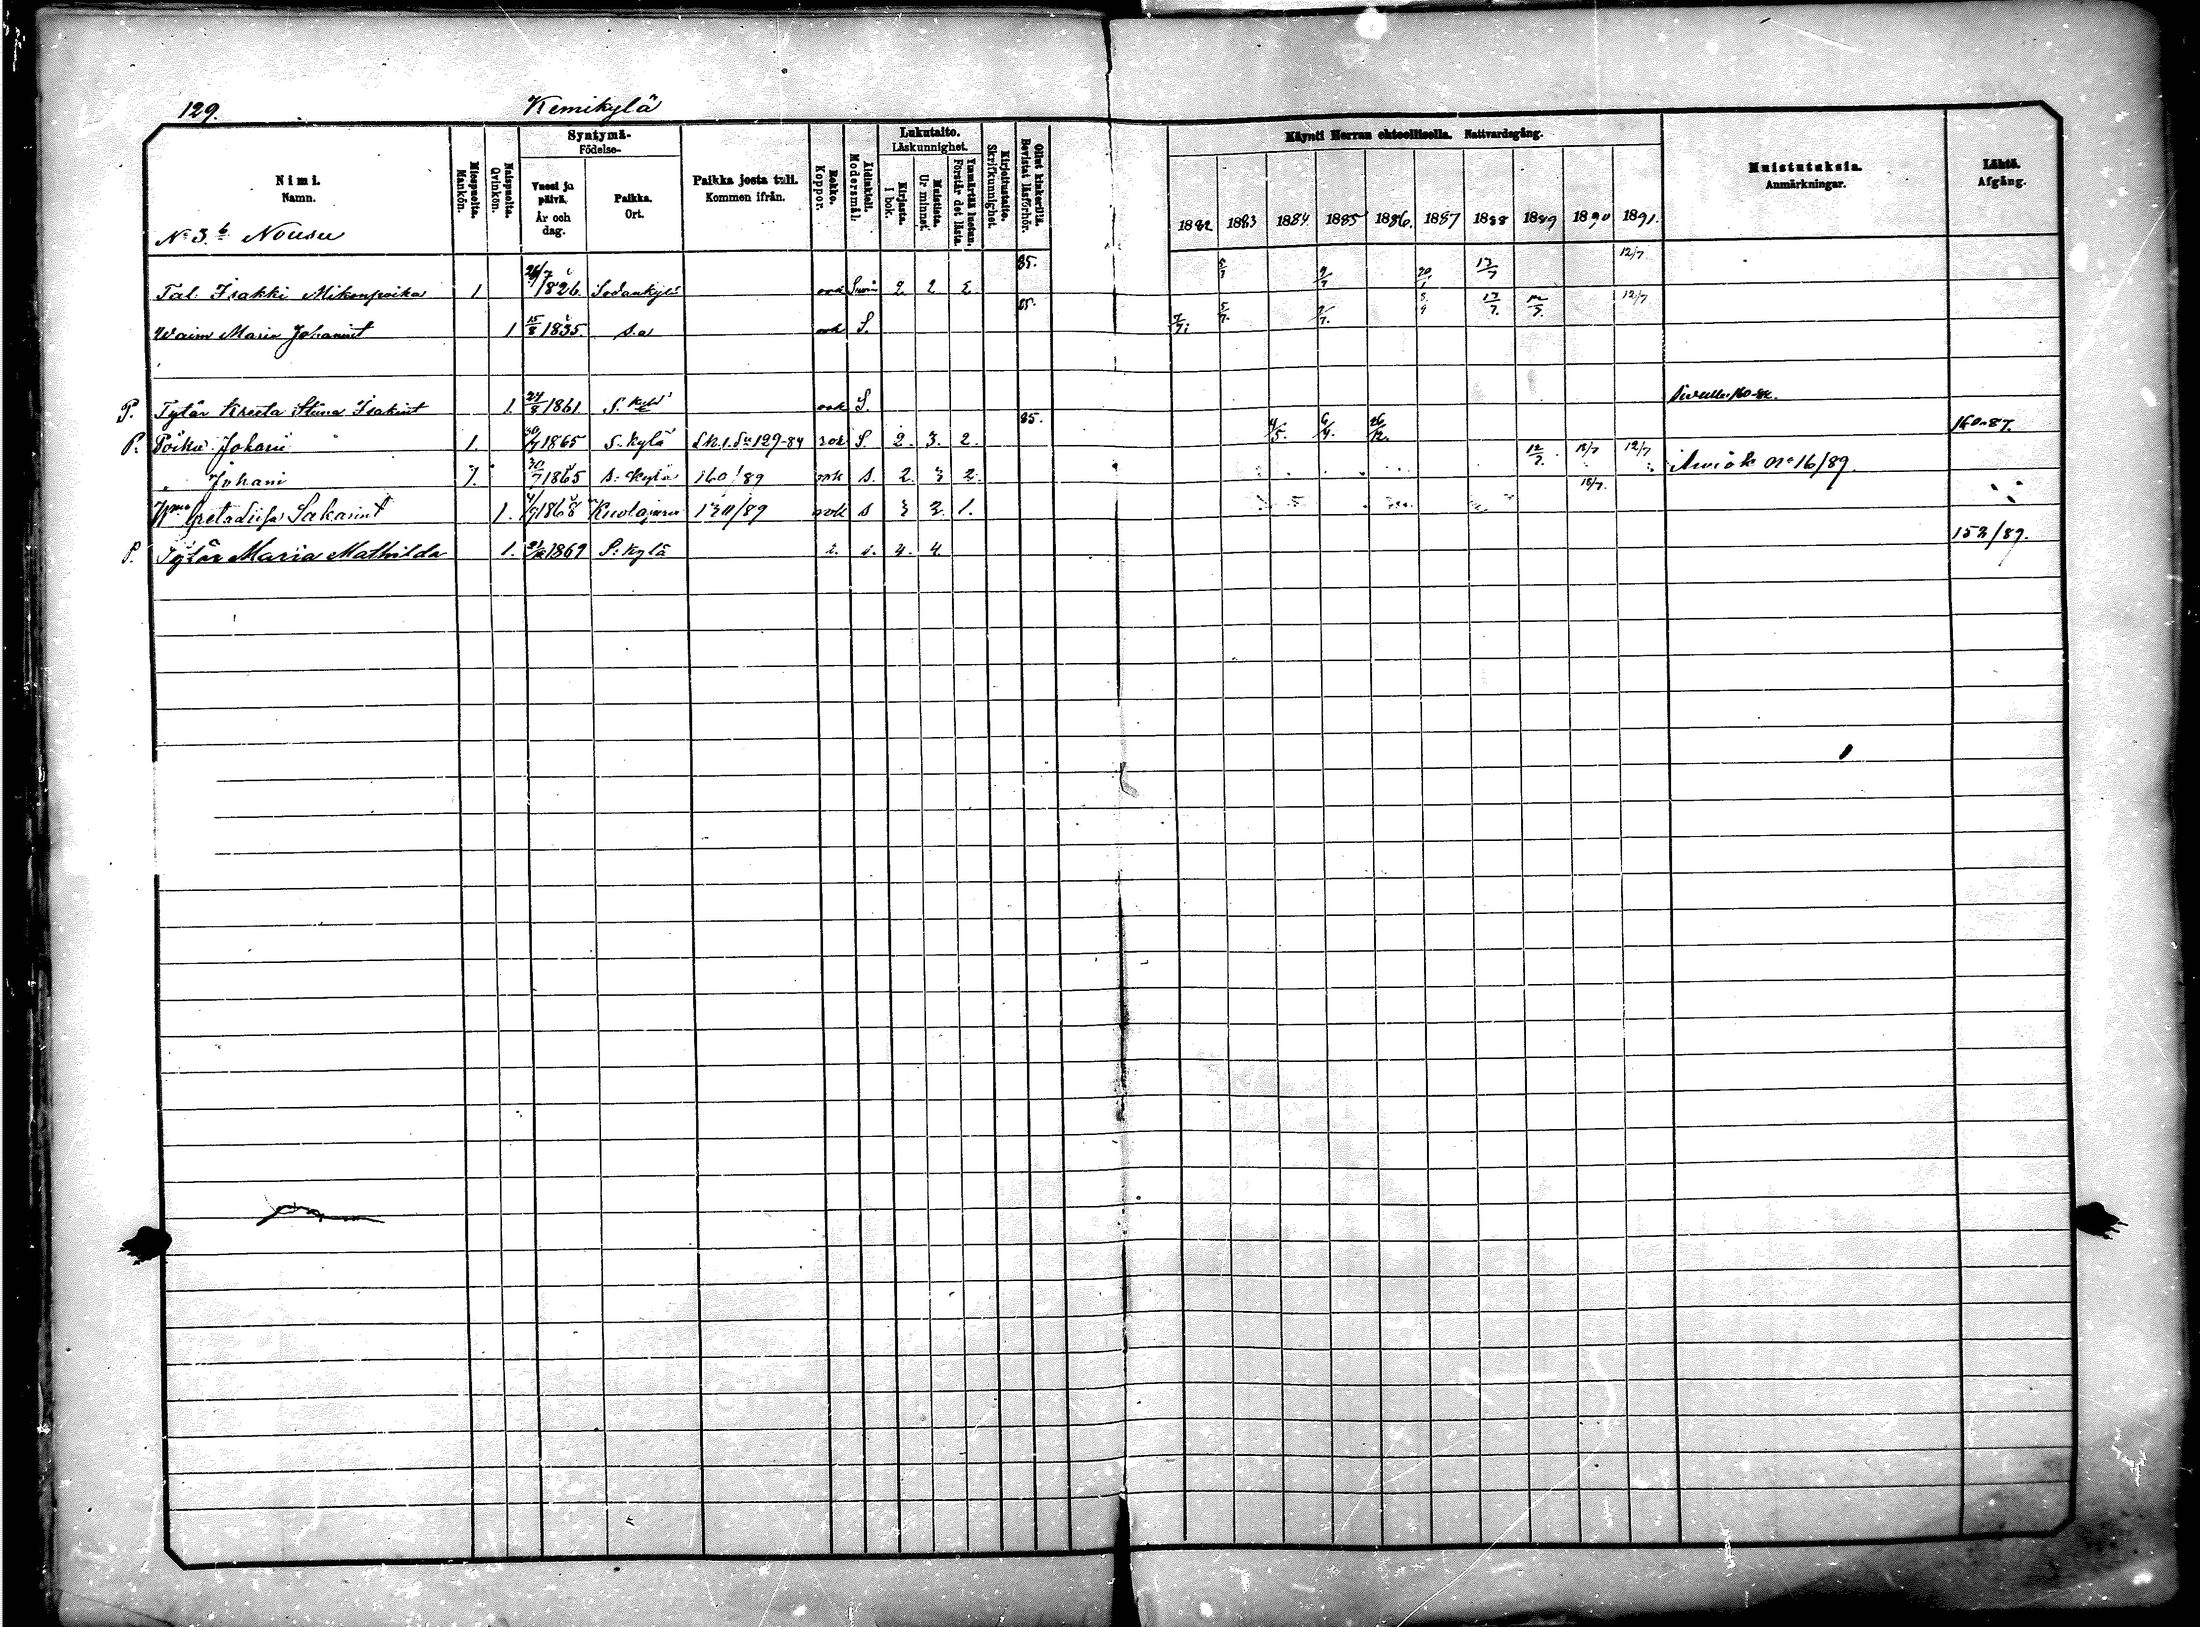 129. Kemikylä
Nimi. Namn.
Miespuolta. Mankön.
Naispuolta. Qvinkön.
Syntymä- Födelse-
Vuosi ja päivä. År och dag.
Paikka. Ort.
Paikka josta tuli. Kommen ifrån.
Rokko. Koppor.
Äidinkieli. Modersmål.
Lukutaito. Läskunnighet.
Kirjasta. I bok.
Muistista. Ur minnet.
Ymmärtää luetun. Förstår det lästa.
Kirjoitustaito. Skrifkunnighet.
Ollut kinkerillä. Bevistat läsförhör.
Käynti Herran ehtoollisella. Nattvardsgång.
1882 1883 1884 1885 1886. 1887 1888 1889 1890 1891.
Muistutuksia. Anmärkningar.
Lähtö. Afgång.
No 3. b Nousu
Tal. Isakki Mikonpoika 1 26/7 1826. Sodankylä rok Suomi 2 2 2 85. 5/7 20/1 13/7 12/7
Waim Maria Johanint 1 15/8 1835. s.a rok S. 85. 7/7. 5/7. 7/7. 13/7. 12/7
P. Tytär Kreeta Stiina Isakint 1. 24/8 1861 S. kylä rok S.
P. Poika Johani 1. 30/7 1865 S. kylä 129-84 rok S. 2. 3. 2. 85. 4/5. 6/4. 26/12. 160-87.
" Johani 1. 30/7 1865 s. kylä 160/89 rok s. 2. 3 2. 12/7. 12/7 12/7 No 16/89.
Wmo Greta Liisa Sakarint 1. 4/9 1868 Kuolajärvi 130/89 rok s 3 3. 1.
P. Tytär Maria Mathilda 1. 1869 S. kylä r. s. 4. 4. 152/89.